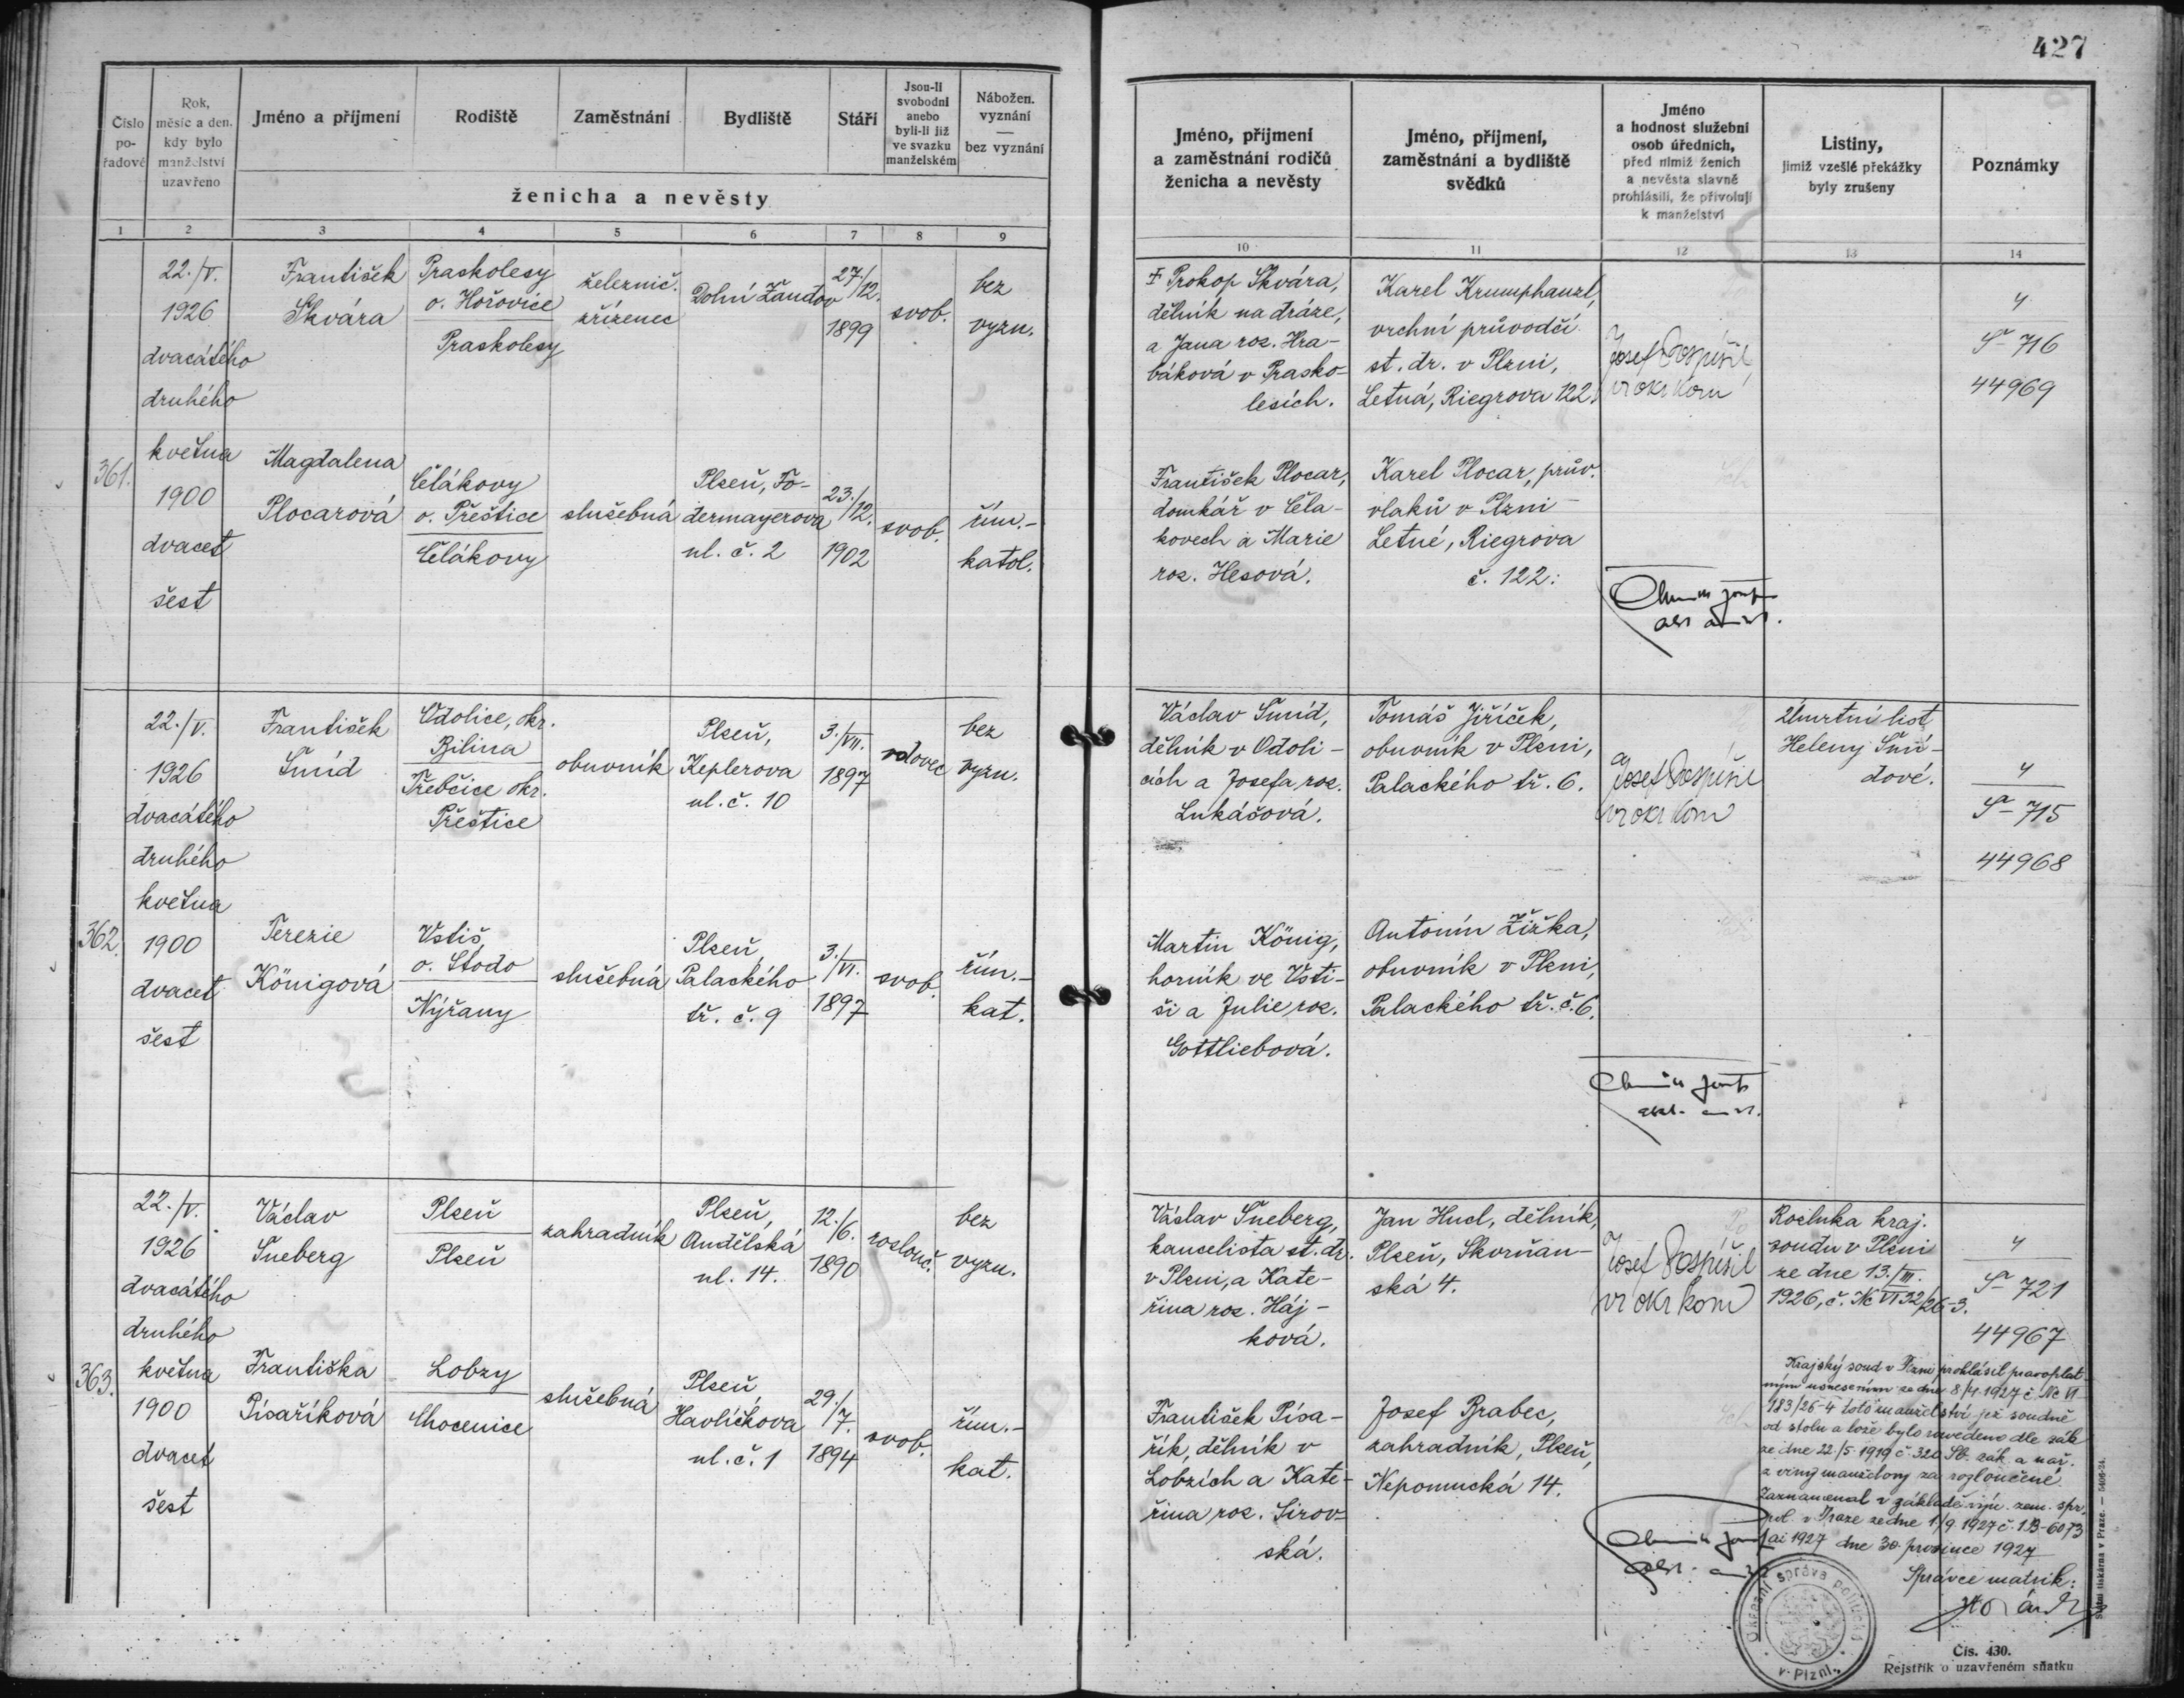 427
Číslo pořadové
Rok, měsíc a den, kdy bylo manželství uzavřeno
Jméno a příjmení
Rodiště
Zaměstnání
Bydliště
Stáří
Jsou-li svobodni anebo byli-li již ve svazku manželském
Nábožen. vyznání — bez vyznání
ženicha a nevěsty
Jméno, příjmení a zaměstnání rodičů ženicha a nevěsty
Jméno, příjmení, zaměstnání a bydliště svědků
Jméno a hodnost služební osob úředních, před nimiž ženich a nevěsta slavně prohlásili, že přivolují k manželství
Listiny, jimiž vzešlé překážky byly zrušeny
Poznámky
1 2 3 4 5 6 7 8 9 10 11 12 13 14
361.
22./V.
1926
dvacátého
druhého
května
1900
dvacet
šest
František
Škvára
Praskolesy
o. Hořovice
Praskolesy
železnič.
zřízenec
Dolní Žandov
27./12.
1899
svob.
bez
vyzn.
† Prokop Škvára,
dělník na dráze,
a Jana roz. Hra-
báková v Prasko-
lesích.
Karel Krumphanzl,
vrchní průvodčí
st. dr. v Plzni,
Letná, Riegrova 122.
Josef Pospíšil
vr okr kom
4
Š-716
44969
Magdalena
Plocarová
Čelákovy
o. Přeštice
Čelákovy
služebná
Plzeň, Fo-
dermayerova
ul. č. 2
23./12.
1902
svob.
řím.-
katol.
František Plocar,
domkář v Čela-
kovech a Marie
roz. Hesová.
Karel Plocar, prův.
vlaků v Plzni
Letné, Riegrova
č. 122.
362.
22./V.
1926
dvacátého
druhého
května
1900
dvacet
šest
František
Šmíd
Odolice, okr.
Bílina
Třebčice okr.
Přeštice
obuvník
Plzeň,
Keplerova
ul. č. 10
3./VII.
1897
vdovec
bez
vyzn.
Václav Šmíd,
dělník v Odoli-
cích a Josefa roz.
Lukášová.
Tomáš Jiříček,
obuvník v Plzni,
Palackého tř. 6.
Josef Pospíšil
vr okr kom
Úmrtní list
Heleny Šmí-
dové.
4
Š-715
44968
Terezie
Königová
Vstiš,
o. Stodo
Nýřany
služebná
Plzeň,
Palackého
tř. č. 9
3./VI.
1897
svob.
řím.-
kat.
Martin König,
horník ve Vsti-
ši a Julie roz.
Gottliebová.
Antonín Žižka,
obuvník v Plzni,
Palackého tř. č. 6.
363.
22./V.
1926
dvacátého
druhého
května
1900
dvacet
šest
Václav
Šneberg
Plzeň
Plzeň
zahradník
Plzeň,
Andělská
ul. 14.
12./6.
1890
rozlouč.
bez
vyzn.
Václav Šneberg,
kancelista st. dr.
v Plzni, a Kate-
řina roz. Háj-
ková.
Jan Hucl, dělník,
Plzeň, Skvrňan-
ská 4.
Josef Pospíšil
vr okr kom
Rozluka kraj.
soudu v Plzni
ze dne 13./III.
1926, č. Nc VI 32/26-3.
4
Š-721
44967
Františka
Písaříková
Lobzy
Chocenice
služebná
Plzeň,
Havlíčkova
ul. č. 1
29./7.
1894
svob.
řím.-
kat.
František Písa-
řík, dělník v
Lobzích a Kate-
řina roz. Sirov-
ská.
Josef Brabec,
zahradník, Plzeň,
Nepomucká 14.
Krajský soud v Plzni prohlásil pravoplat-
ným usnesením ze dne 8/4 1927 č. Nc VI
183/26-4 toto manželství jež soudně
od stolu a lože bylo rozvedeno dle zák
ze dne 22/5 1919 č. 320 Sb. zák. a nař.
z viny manželovy za rozloučené.
Zaznamenal v základě výn. zem. spr.
pol. v Praze ze dne 1/9 1927 č. 1B-6073
ai 1927 dne 30. prosince 1927
Správce matrik:
Okresní správa politická v Plzni
Státní tiskárna v Praze. — 5406-24.
Čís. 430.
Rejstřík o uzavřeném sňatku